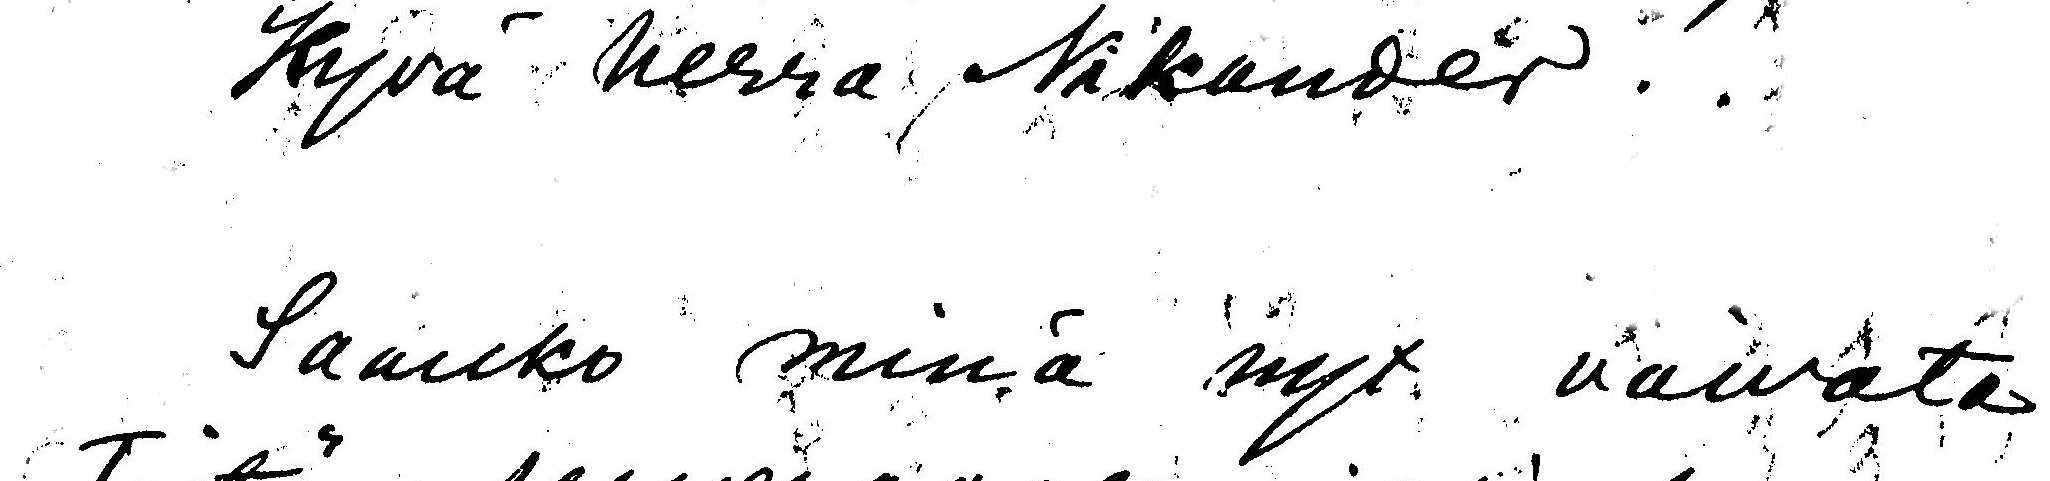 Hyvä herra Nikander!
Saanko minä nyt vaivata